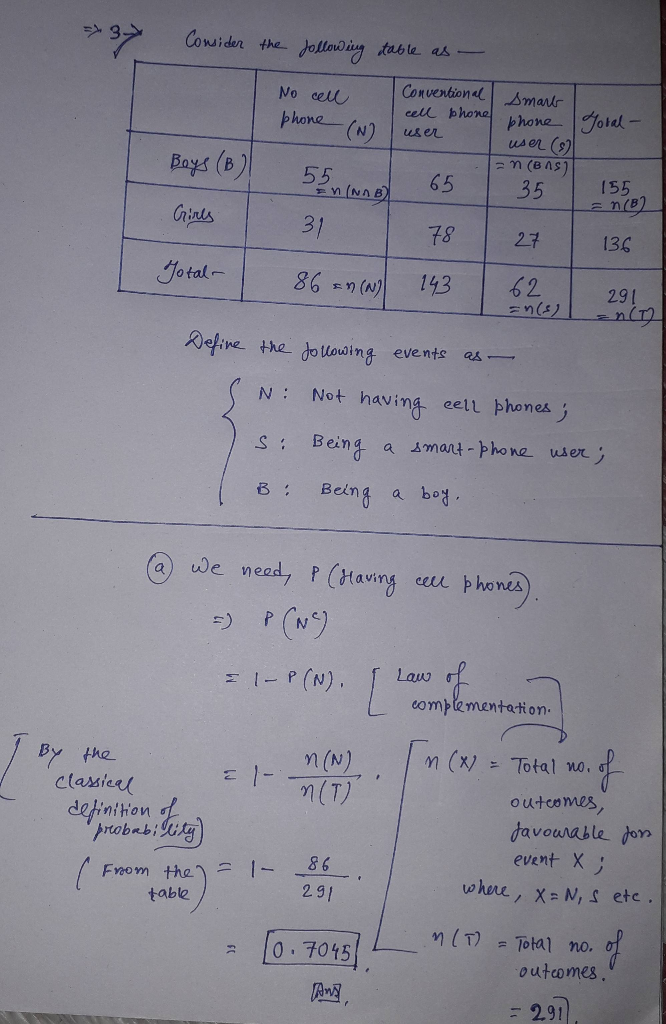 => 3→ Consider the following table as —
No cell phone (N) | Conventional cell phone user | Smart phone user (S) | Total -
Boys (B) | 55 = n(N∩B) | 65 | = n(B∩S) 35 | 155 = n(B)
Girls | 31 | 78 | 27 | 136
Total - | 86 = n(N) | 143 | 62 = n(S) | 291 = n(T)
Define the following events as —
N : Not having cell phones ;
S : Being a smart-phone user ;
B : Being a boy.
(a) We need, P (Having cell phones).
=) P(Nᶜ)
= 1 - P(N). [Law of complementation.]
[By the classical definition of probability] = 1 - n(N)/n(T) .
[n(X) = Total no. of outcomes, favourable for event X ; where, X = N, S etc.
(From the table) = 1 - 86/291 .
n(T) = Total no. of outcomes.
= 291].
= 0.7045 .
Ans.